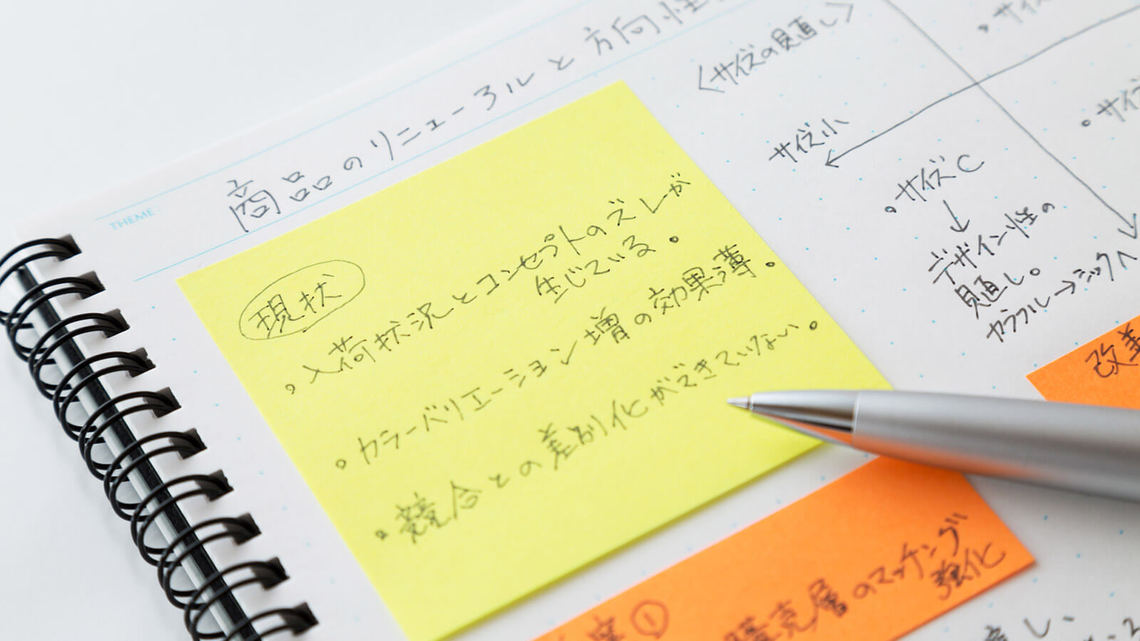 THEME
商品のリニューアルと方向性
現状
• 入荷状況とコンセプトのズレが
生じている。
• カラーバリエーション増の効果薄。
• 競合との差別化ができていない。
<サイズの見直し>
サイズ小
• サイズC
↓
デザイン性の
見直し。
カラフル→シックへ
• サイ
• サイズ
改善
①
購売層のマッチング
強化